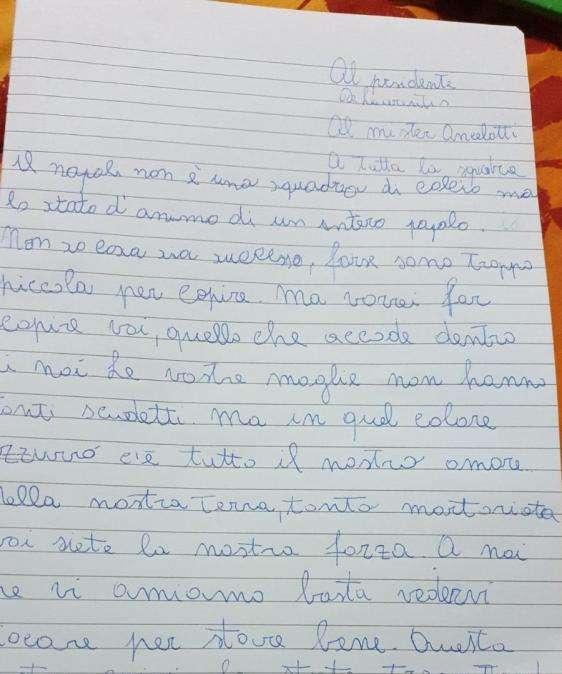 Al presidente
De Laurentis
Al mister Ancelotti
A tutta la squadra
il napoli non è una squadra di calcio ma
lo stato d'animo di un intero popolo.
Non so cosa sia successo, forse sono troppo
piccola per capire. Ma vorrei far
capire voi, quello che accade dentro
i noi Le vostre maglie non hanno
anti scudetti. Ma in quel colore
zzurro c'è tutto il nostro amore.
ella nostra terra, tanto martoriata
oi siete la nostra forza. A noi
he vi amiamo basta vedervi
iocare per stare bene. Questa